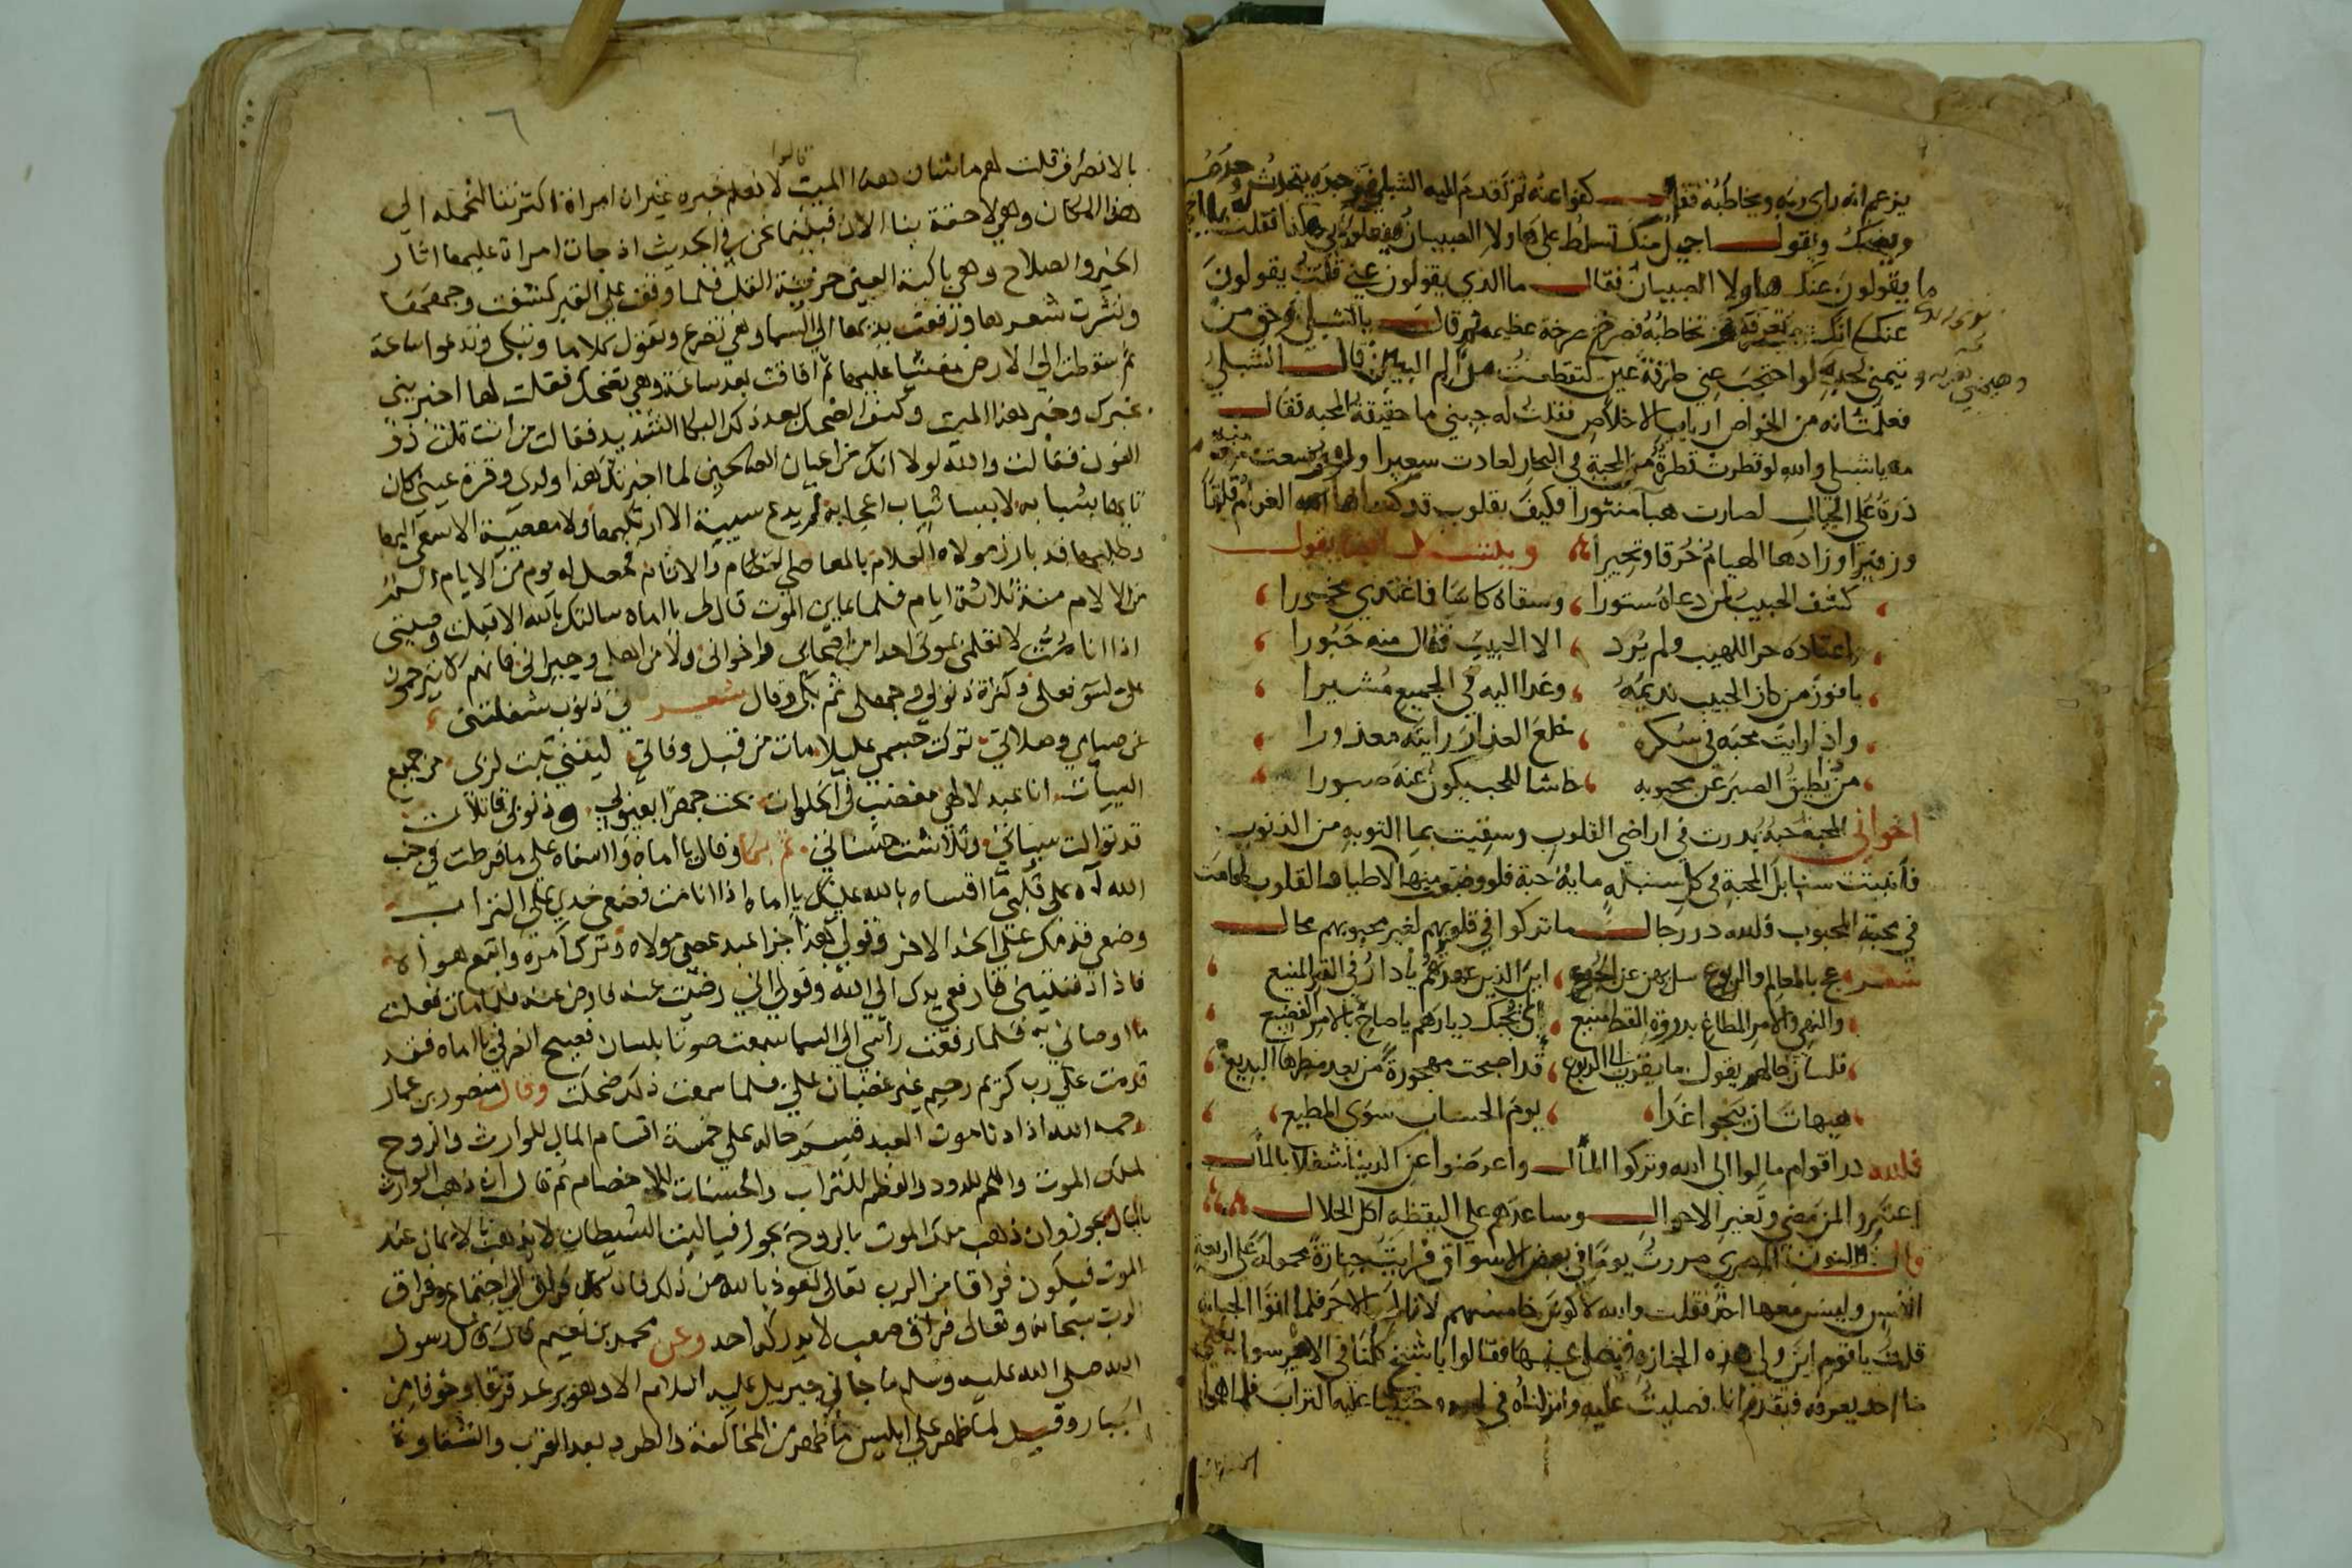 يزعم انه راى ربه ويخاطبه فقال كفوا عنه ثم تقدم اليه الشبلي فوجده يتحدث وحده
ويضحك ويقول اجميل منك تسلط على هاولا الصبيان يفعلون بي هكذا فقلت له يا اخي
ما يقولون عنك هاولا الصبيان فقال ما الذي يقولون عني قلت يقولون
عنك انك تزعم تخاطبه فصرخ صرخة عظيمه ثم قال يا شبلي وحق من
تيمني بحبه لو احتجب عني طرفة عين لتقطعت من الم البين قال الشبلي
فعلمت انه من الخواص ارباب الاخلاص فقلت له حبيبي ما حقيقة المحبه فقال
مه يا شبلي والله لو قطرت قطرة من المحبة في البحار لعادت سعيرا ولو وضعت منه
ذرة على الجبال لصارت هبآ منثورا فكيف بقلوب قد كساها الغرام قلقا
وزفيرا وزادها الهيام حرقا وتحيرا وينشد يقول
كشف الحبيب لمن دعاه ستورا وسقاه كاسا فاغتدي مخمورا
واعتاده حر اللهيب ولم يرد الا الحبيب فنال منه حبورا
يا فوز من كان الحبيب نديمه وغدا اليه في الجميع مشيرا
واذا رايت محبه في سكره خلع العذار رايته معذورا
من يطيق الصبر عن محبوبه حاشا للمحب يكون عنه صبورا
اخواني المحبة حبة بدرت في اراضي القلوب وسقيت بما التوبه من الذنوب
فانبتت سنابل المحبة في كل سنبله مايه حبة فلو وضعت منها لاطيار القلوب لهامت
في محبة المحبوب فلله در رجال ما تركوا في قلوبهم لغير محبوبهم مجال
شعر عج بالمعالم والربوع سلهن عن الجموع اين الذين عهدتهم يا دار في القدر المنيع
والنهي والامر المطاع بدروة القطر المنيع اي تجبك ديارهم يا صاح بالامر الفضيع
فلسان حالهم يقول ما يقرب الربوع قد اصبحت مهجورة من بعد منظرها البديع
هيهات ان ينجوا غدا يوم الحساب سوى المطيع
فلله در اقوام مالوا الى الله وتركوا المال واعرضوا عن الدنيا شغلا بالمآل
اعتبروا لمن مضى وتغير الاحوال وساعدهم على اليقظه اكل الحلال
وقال ذا النون المصري مررت يوما في بعض الاسواق فرايت جنازة محمولة على اربعة
انفس وليس معها احد فقلت والله لاكونن خامسهم لانال الاجر فلما اتوا الجبانه
قلت يا قوم اين ولي هذه الجنازه فيصلي عنها فقالوا يا شيخ كلنا في الامر سوا
منا احد يعرفه فتقدم انا فصليت عليه وانزلناه في لحده وحثينا عليه التراب فلما هموا
بالانصراف قلت لهم ما شان هذا الميت قالوا لا نعلم خبره غير ان امراة اكترتنا لنحمله الى
هذا المكان وهي لاحقة بنا الان فبينما نحن في الحديث اذ جات امراة عليها اثار
الخير والصلاح وهي باكية العين حزينة القلب فلما وقفت على القبر كشفت وجهها
ونشرت شعرها ورفعت يديها الى السما وهي تضرع وتقول كلاما وتبكي وتدعوا ساعة
ثم سقطت الى الارض مغشيا عليها ثم افاقت بعد ساعة وهي تضحك فقلت لها اخبريني
خبرك وخبر هذا الميت وكيف الضحك بعد ذلك البكا الشديد فقالت من انت قلت ذو
النون فقالت والله لولا انك من اعيان الصالحين لما اخبرتك هذا ولدي وقرة عيني كان
تايها بشبابه لابسا ثياب اعجابه لم يدع سيية الا ارتكبها ولا معصية الا سعى اليها
وطلبها قد بارز مولاه العلام بالمعاصي العظام والاثام فحصل له يوم من الايام الم
من الالام منذ ثلاثة ايام فلما عاين الموت قال لي يا اماه سالتك بالله الا قبلت وصيتي
اذا انا مت لا تعلمي بموتى احدا من اصحابي واخواني ولا من اهلي وجيراني فانهم لا يترحمون
على لسو فعلي وكثرة ذنوبي وجهلي ثم بكى وقال شعر لي ذنوب شغلتني
عن صيامي وصلاتي تركت جسمي عليلا مات من قبل وفاتي ليتني تبت لربي من جميع
السيات انا عبد لالهي مغضب في الخلوات بحت جهرا بعيوبي وذنوبي قاتلات
قد توالت سيياتي وتلاشت حسناتي ثم بكا وقال يا اماه وا اسفاه على ما فرطت في جنب
الله آه على قلبي ما اقساه بالله عليك يا اماه اذا انا مت فضعي خدي على التراب
وضعي قدمك على الخد الاخر وقولي هذا جزا عبد عصى مولاه وترك امره واتبع هواه
فاذا دفنتيني فارفعي يدك الى الله وقولي اني رضيت عنه فارض عنه فلما مات فعلت
ما اوصاني به فلما رفعت راسي الى السما سمعت صوتا بلسان فصيح انصرفي يا اماه فقد
قدمت على رب كريم رحيم غير غضبان علي فلما سمعت ذلك ضحكت وقال منصور بن عمار
رحمه الله اذا دنا موت العبد قسم حاله على خمسة اقسام المال للوارث والروح
لملك الموت واللحم للدود والعظم للتراب والحسنات للاخصام ثم قال ان ذهب الوارث
بالمال يجوز وان ذهب ملك الموت بالروح يجوز فيا ليت الشيطان لا يذهب بالايمان عند
الموت فيكون فراقا من الرب تعالى نعوذ بالله من ذلك فان كل فراق الى اجتماع وفراق
الرب سبحانه وتعالى فراق صعب لا يدركه احد وعن محمد بن نعيم قال قال رسول
الله صلى الله عليه وسلم ما جاني جبريل عليه السلام الا وهو يرعد فرقا وخوفا من
الجبار وقيل لما ظهر على ابليس ما ظهر من المخالفة والطرد بعد القرب والشقاوة